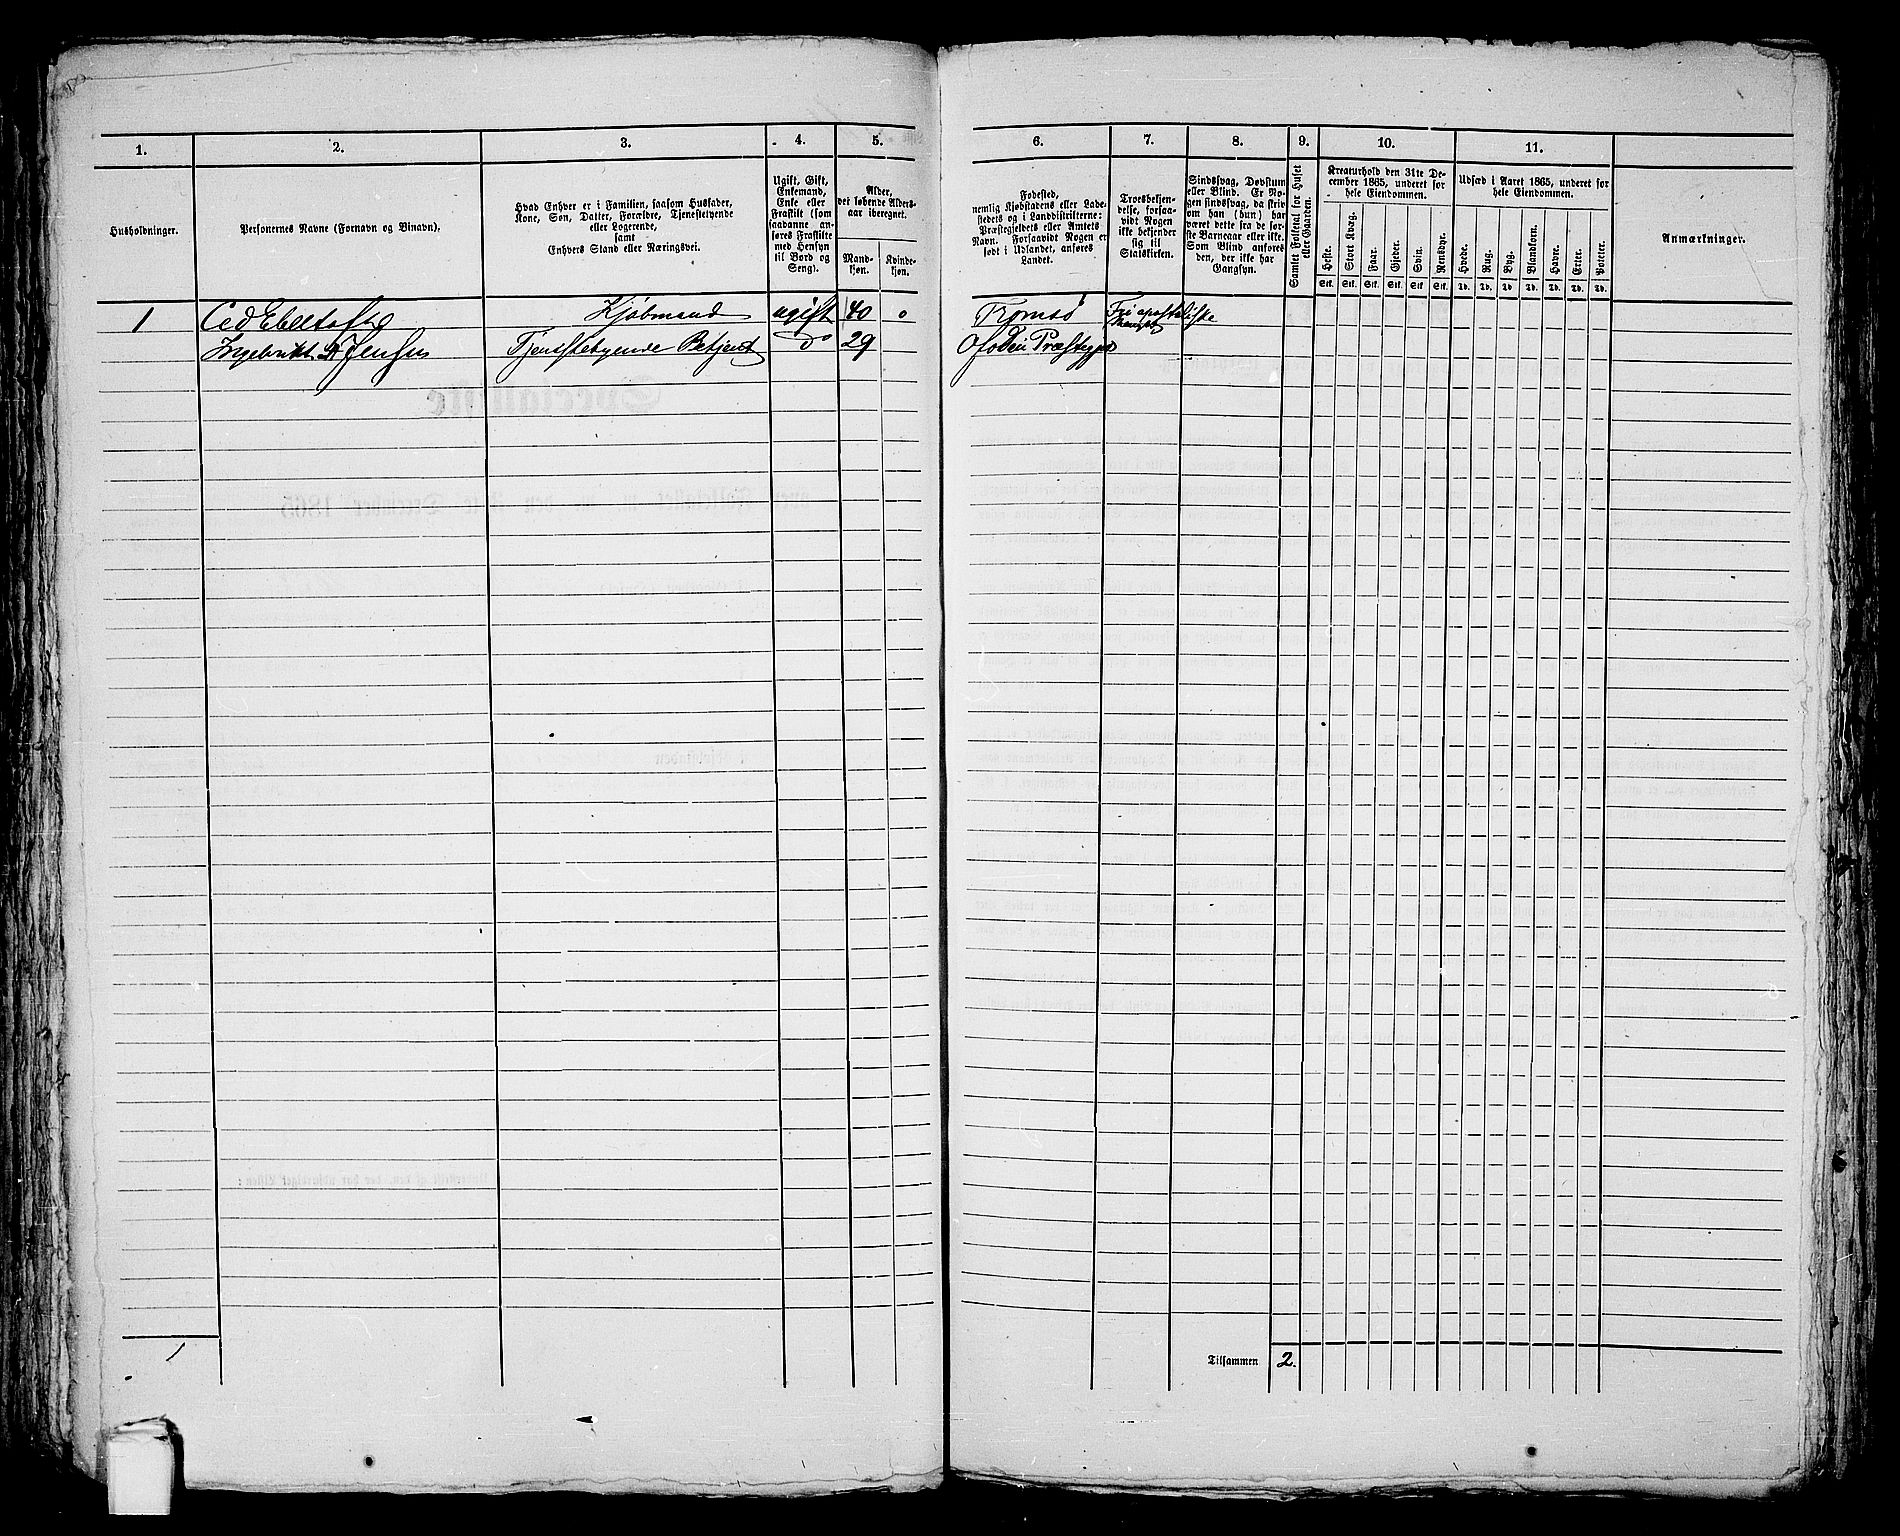 1. 2. 3. 4. 5.
Husholdninger.
Personernes Navne (Fornavn og Binavn).
Hvad Enhver er i Familien, saasom Husfader,
Kone, Søn, Datter, Forældre, Tjenestetyende
eller Logerende,
samt
Enhvers Stand eller Næringsvei.
Ugift, Gift,
Enkemand,
Enke eller
Fraskilt (som
saadanne an-
føres Fraskilte
med Hensyn
til Bord og
Seng).
Alder,
det løbende Alders-
aar iberegnet.
Mand-
kjøn.
Kvinde-
kjøn.
1 Kjøbmand ugift 40 0
Ingebrikt Jensen Tjenestetyende Betjent Do 29
1
6. 7. 8. 9. 10. 11.
Fødested,
nemlig Kjøbstadens eller Lade-
stedets og i Landdistrikterne:
Præstegjeldets eller Amtets
Navn. Forsaavidt Nogen er
født i Udlandet, anføres
Landet.
Troesbekjen-
delse, forsaa-
vidt Nogen
ikke bekjender
sig til
Statskirken.
Sindssvag, Døvstum
eller Blind. Er No-
gen sindssvag, da skriv
om han (hun) har
været dette fra de før-
ste Barneaar eller ikke.
Som Blind anføres
den, der ikke har
Gangsyn.
Samlet Folketal for Huset
eller Gaarden.
Kreaturhold den 31te De-
cember 1865, underet for
hele Eiendommen.
Heste. Stort Kvæg. Faar. Gjeder. Svin. Rensdyr.
Stk. Stk. Stk. Stk. Stk. Stk.
Udsæd i Aaret 1865, underet for
hele Eiendommen.
Hvede. Rug. Byg. Blandkorn. Havre. Erter. Poteter.
Td. Td. Td. Td. Td. Td. Td.
Anmærkninger.
Tromsø Fri apostoliske
Menighed
Ofoden Præstegjeld
Tilsammen 2.